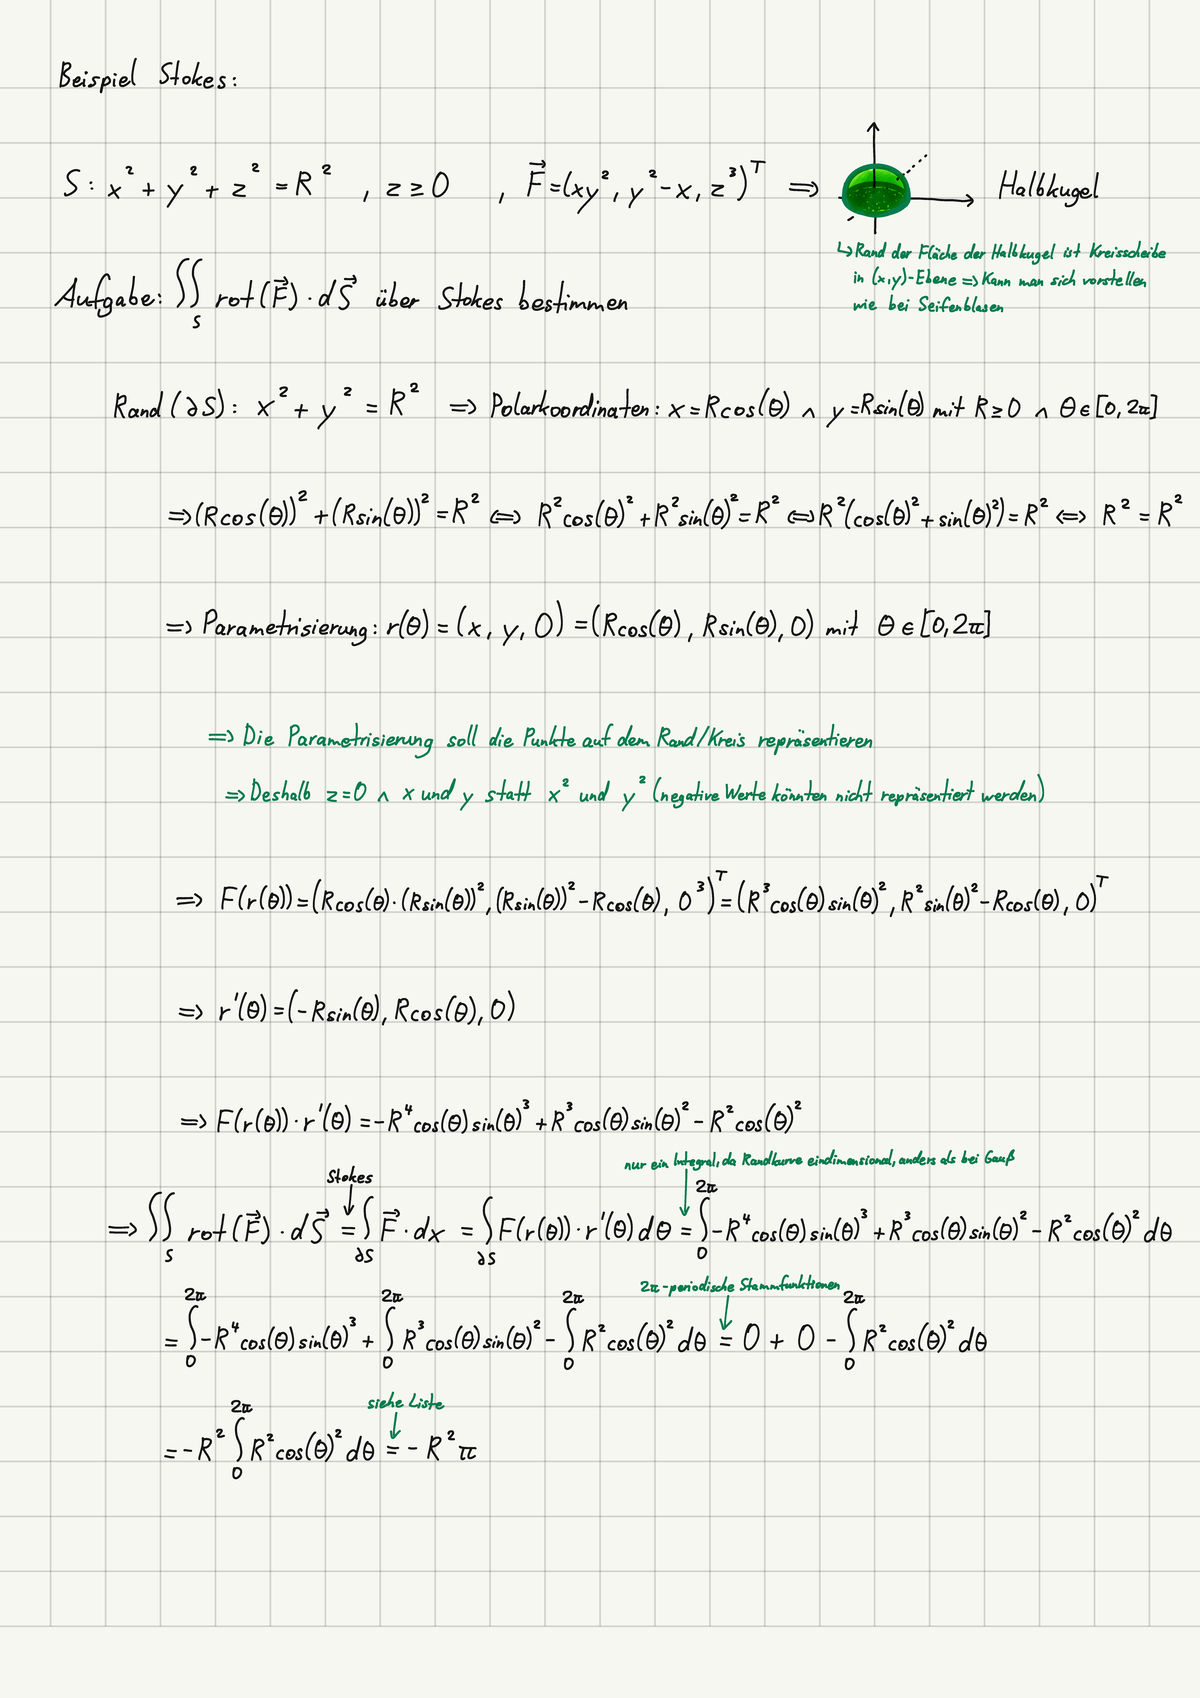 Beispiel Stokes:
S: x² + y² + z² = R² , z ≥ 0 , F⃗ = (xy², y² - x, z³)ᵀ ⇒ Halbkugel
↳ Rand der Fläche der Halbkugel ist Kreisscheibe
in (x,y)-Ebene ⇒ Kann man sich vorstellen
wie bei Seifenblasen
Aufgabe: ∬_S rot(F⃗) · dS⃗ über Stokes bestimmen
Rand (∂S): x² + y² = R² ⇒ Polarkoordinaten: x = Rcos(θ) ∧ y = Rsin(θ) mit R ≥ 0 ∧ θ ∈ [0, 2π]
⇒ (Rcos(θ))² + (Rsin(θ))² = R² ⇔ R²cos(θ)² + R²sin(θ)² = R² ⇔ R²(cos(θ)² + sin(θ)²) = R² ⇔ R² = R²
⇒ Parametrisierung: r(θ) = (x, y, 0) = (Rcos(θ), Rsin(θ), 0) mit θ ∈ [0, 2π]
⇒ Die Parametrisierung soll die Punkte auf dem Rand/Kreis repräsentieren
⇒ Deshalb z=0 ∧ x und y statt x² und y² (negative Werte könnten nicht repräsentiert werden)
⇒ F(r(θ)) = (Rcos(θ) · (Rsin(θ))², (Rsin(θ))² - Rcos(θ), 0³)ᵀ = (R³cos(θ)sin(θ)², R²sin(θ)² - Rcos(θ), 0)ᵀ
⇒ r'(θ) = (-Rsin(θ), Rcos(θ), 0)
⇒ F(r(θ)) · r'(θ) = -R⁴cos(θ)sin(θ)³ + R³cos(θ)sin(θ)² - R²cos(θ)²
nur ein Integral, da Randkurve eindimensional, anders als bei Gauß
Stokes
⇒ ∬_S rot(F⃗) · dS⃗ = ∫_∂S F⃗ · dx = ∫_∂S F(r(θ)) · r'(θ) dθ = ∫_0^2π -R⁴cos(θ)sin(θ)³ + R³cos(θ)sin(θ)² - R²cos(θ)² dθ
2π-periodische Stammfunktionen
= ∫_0^2π -R⁴cos(θ)sin(θ)³ + ∫_0^2π R³cos(θ)sin(θ)² - ∫_0^2π R²cos(θ)² dθ = 0 + 0 - ∫_0^2π R²cos(θ)² dθ
siehe Liste
= -R² ∫_0^2π R²cos(θ)² dθ = -R²π